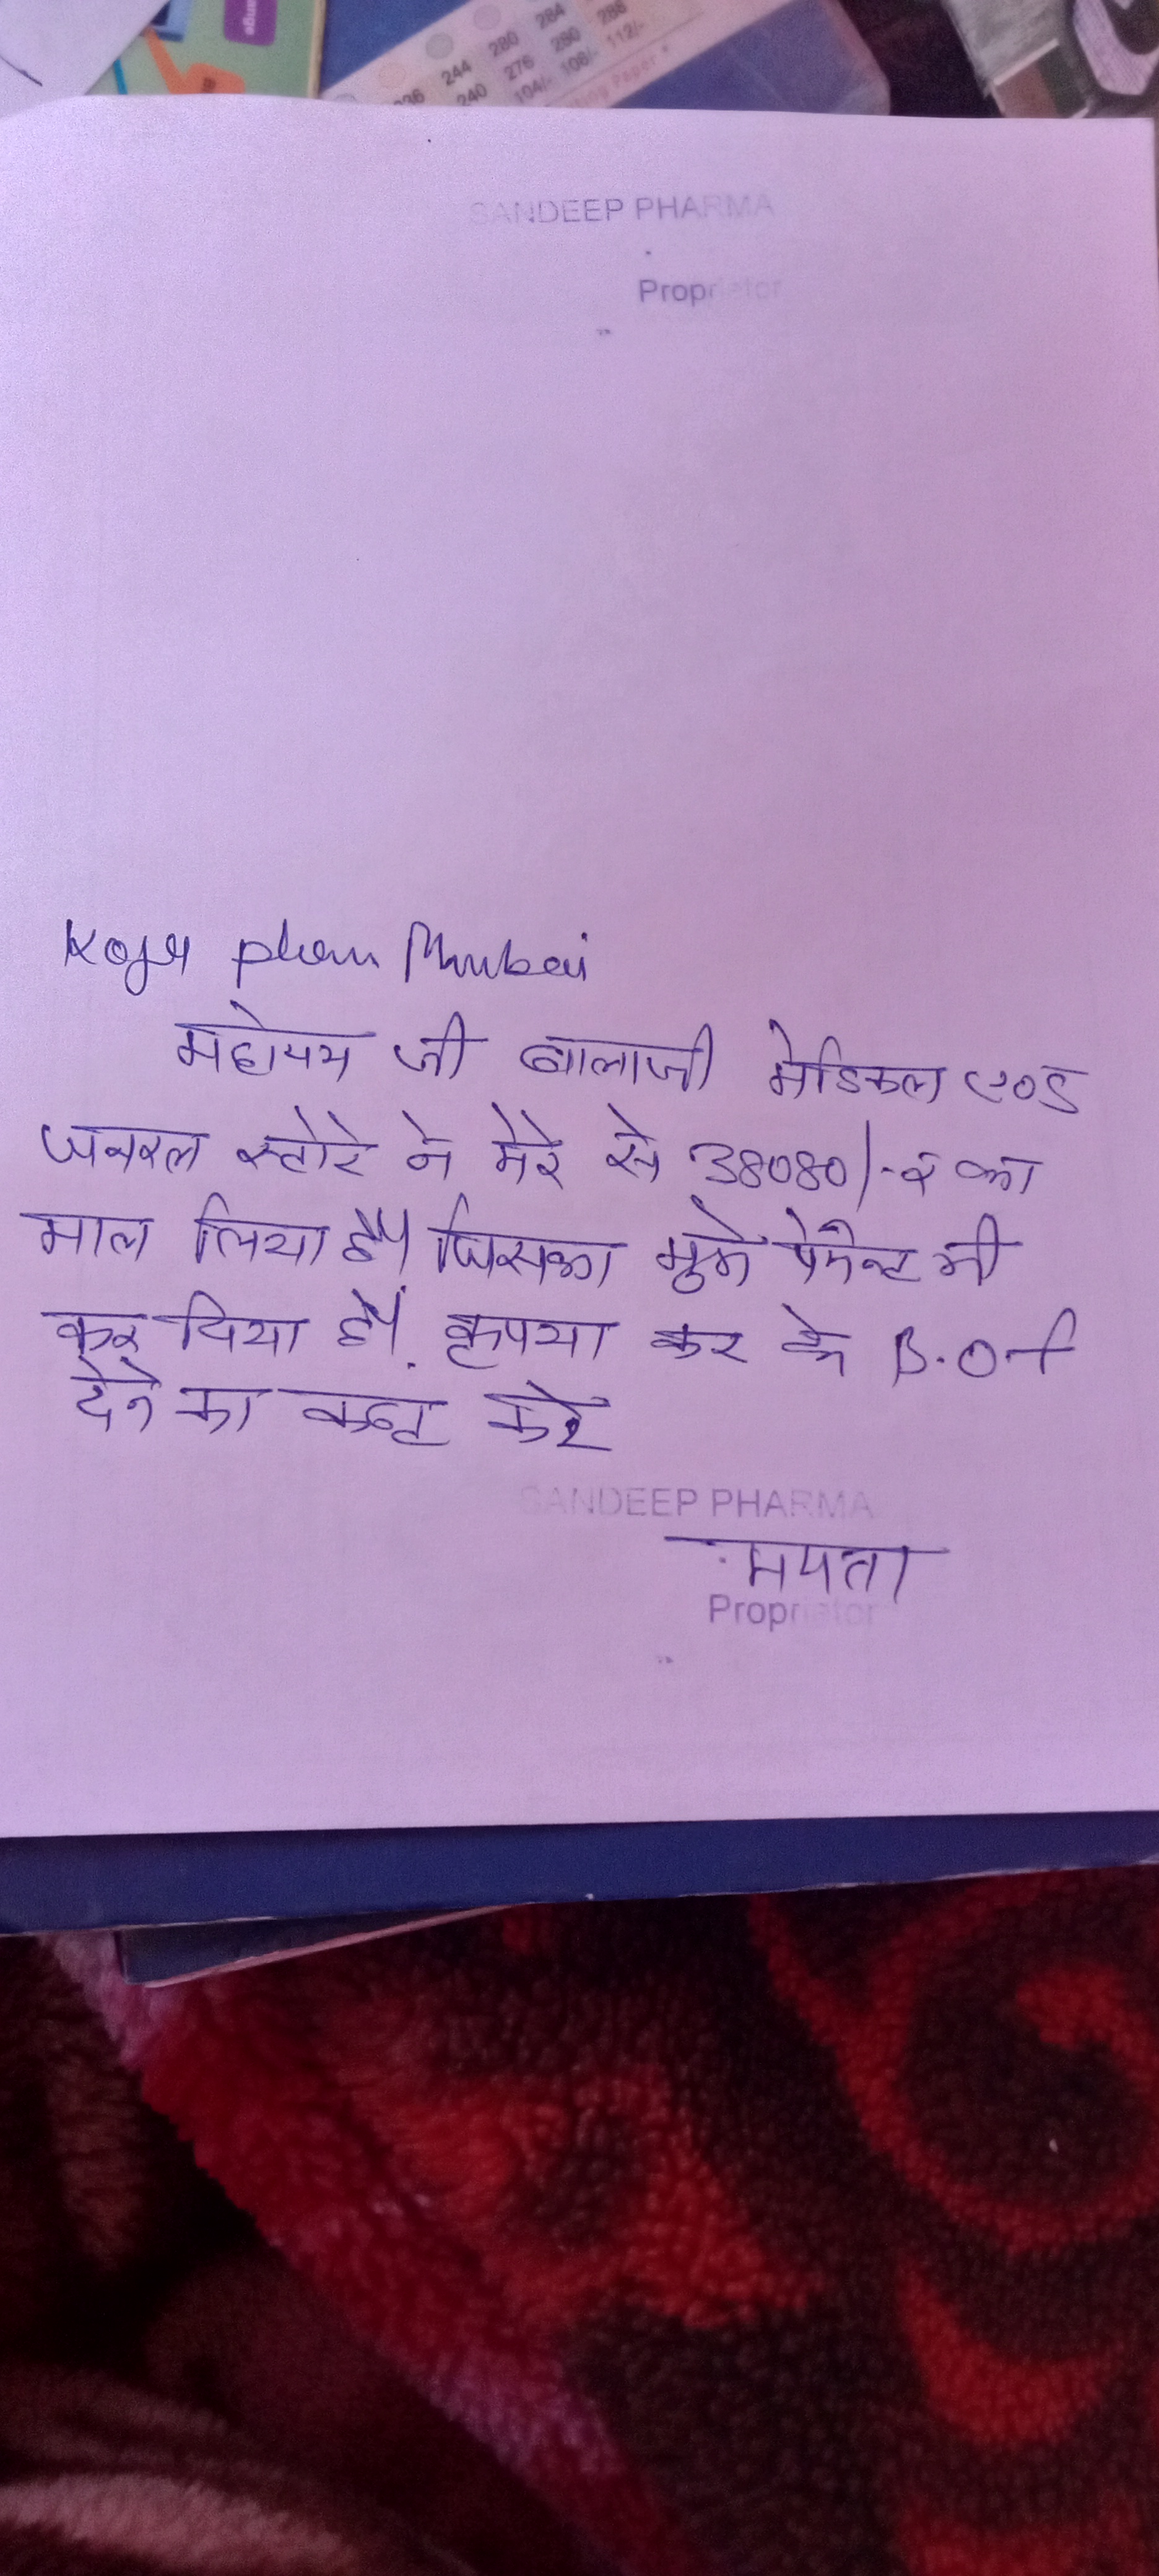 ange
284 288
244 280 280 112/-
236 240 276 108/-
104/-
Paper
SANDEEP PHARMA
Proprietor
Mumbai
महोदय जी बालाजी मेडिकल एण्ड
जनरल स्टोरे ने मेरे से 38080/-रु का
माल लिया है। जिसका मुझे पेमेन्ट भी
कर दिया है। कृपया कर के B.O.f
देने का कष्ट करे
SANDEEP PHARMA
ममता
Proprietor